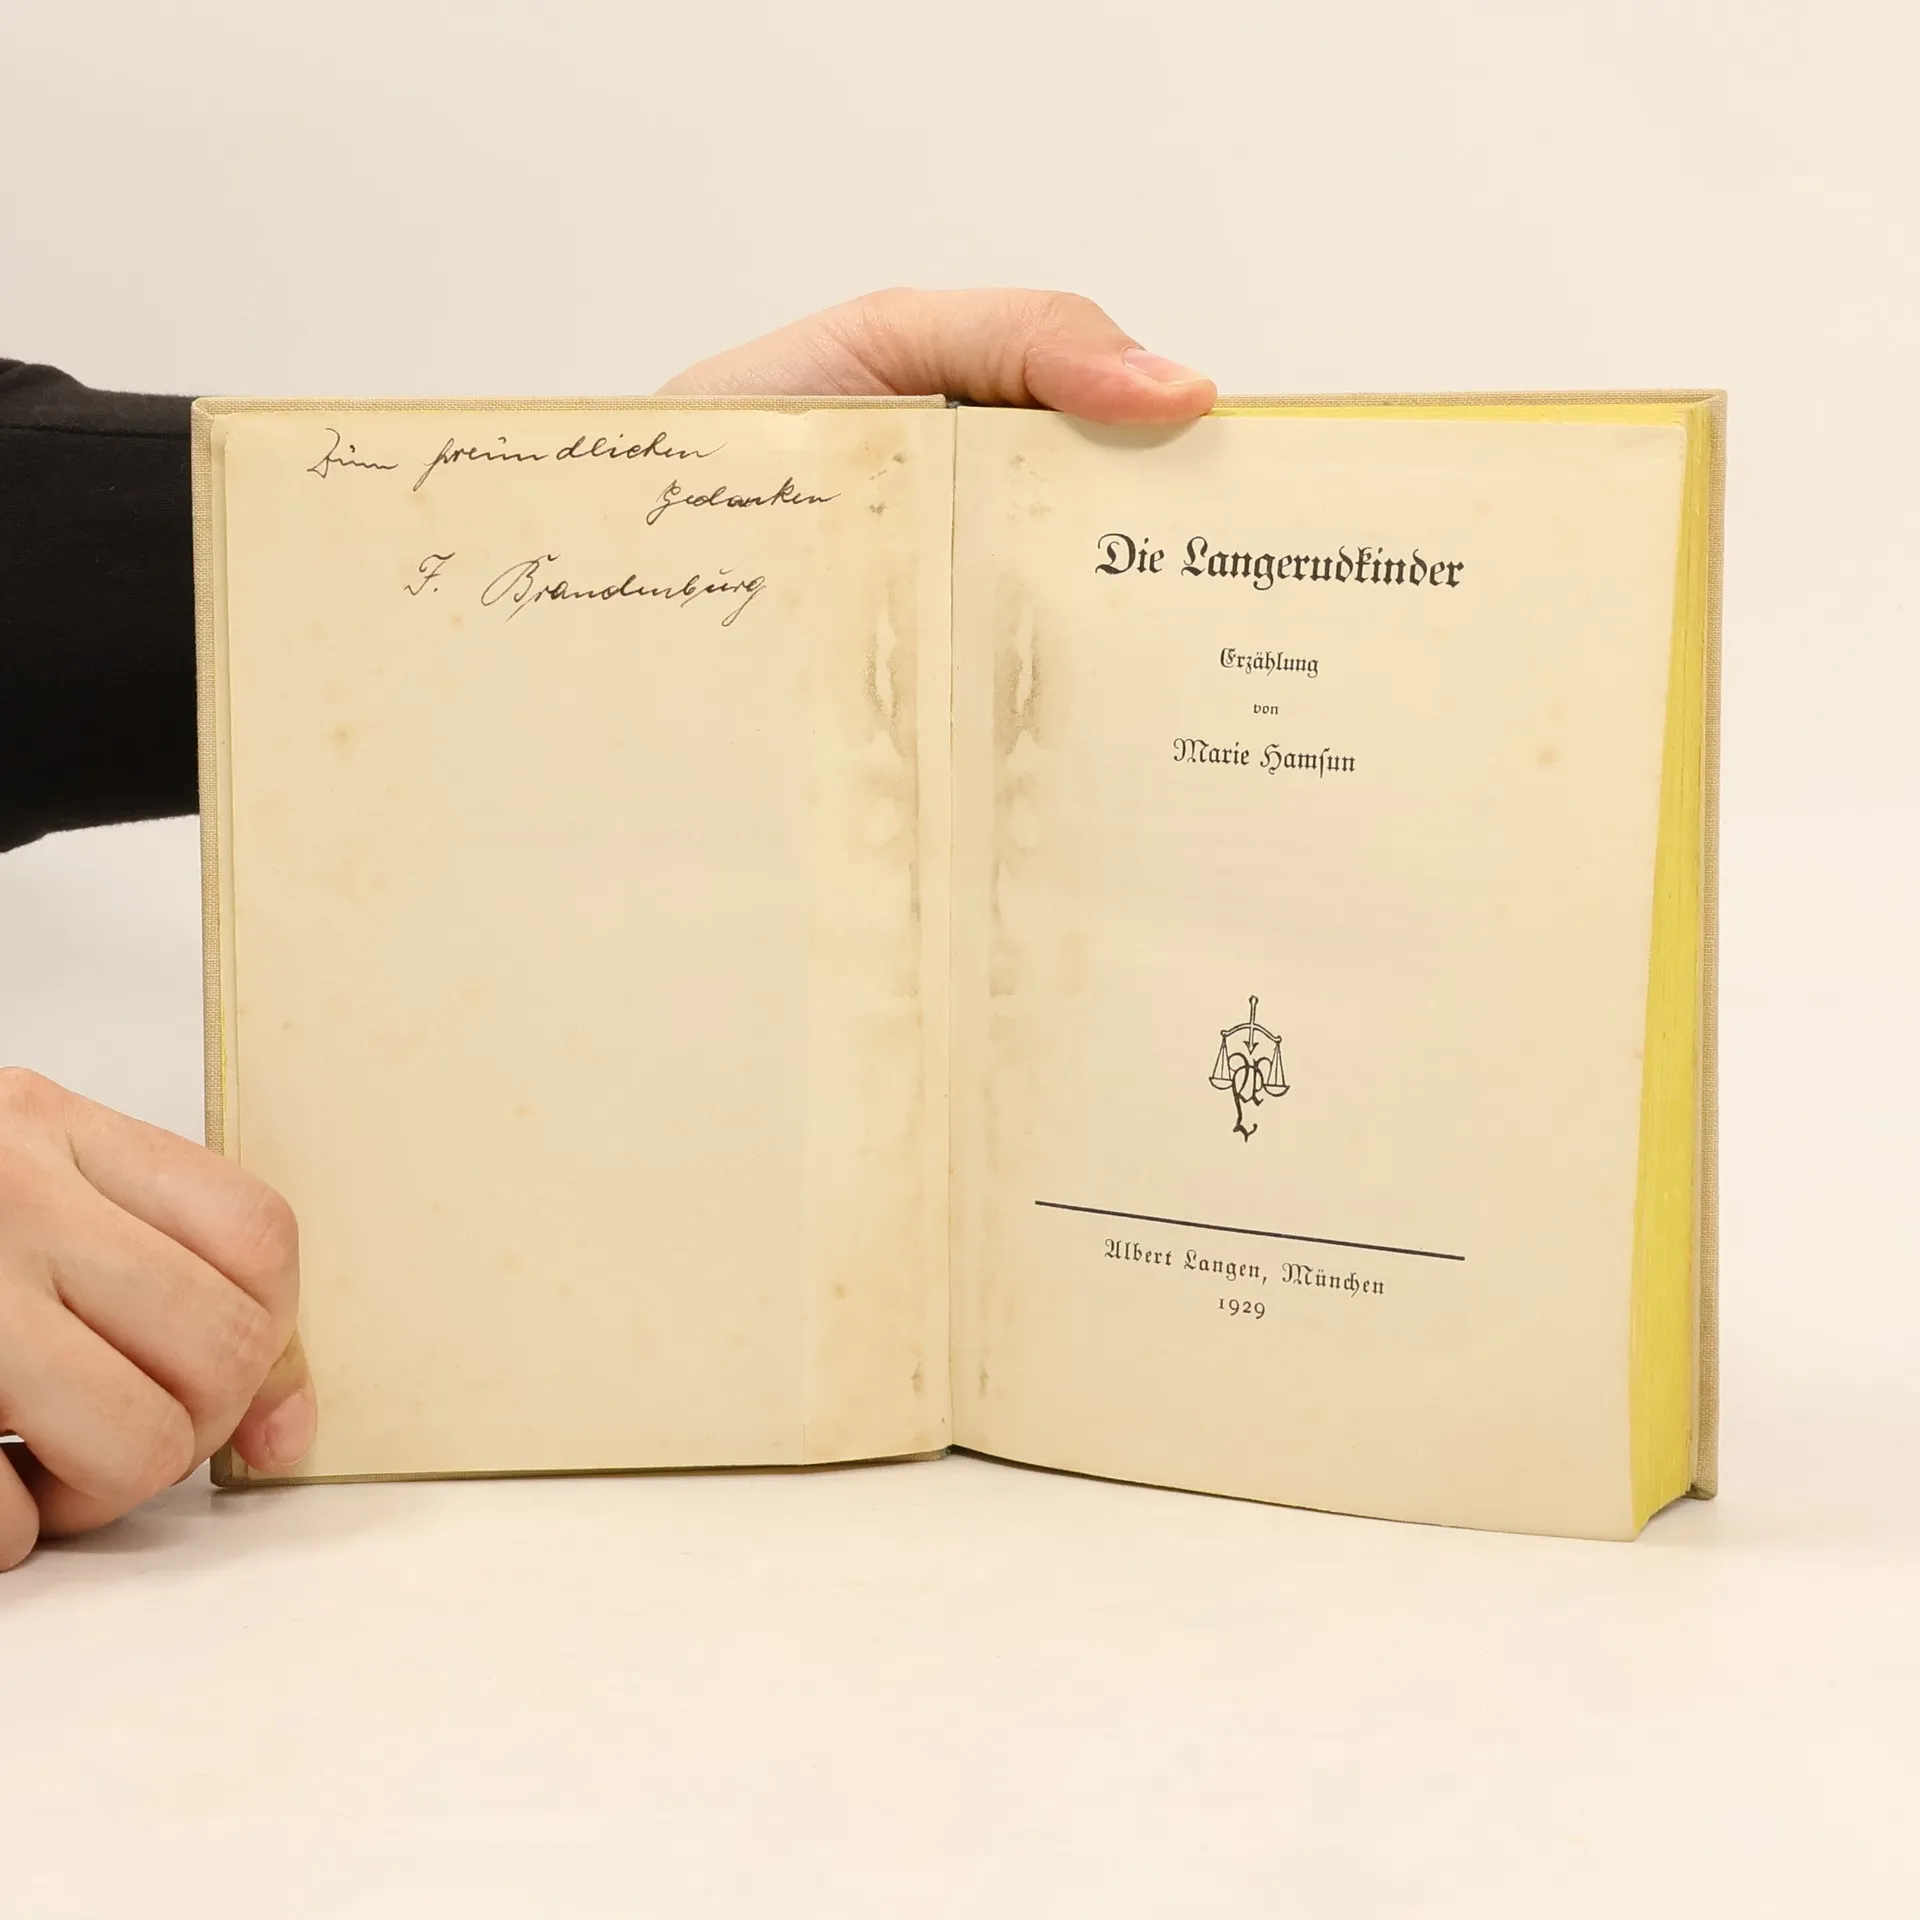 Zum freundlichen
Gedanken
F. Brandenburg
Die Langerudkinder
Erzählung
von
Marie Hamsun
Albert Langen, München
1929